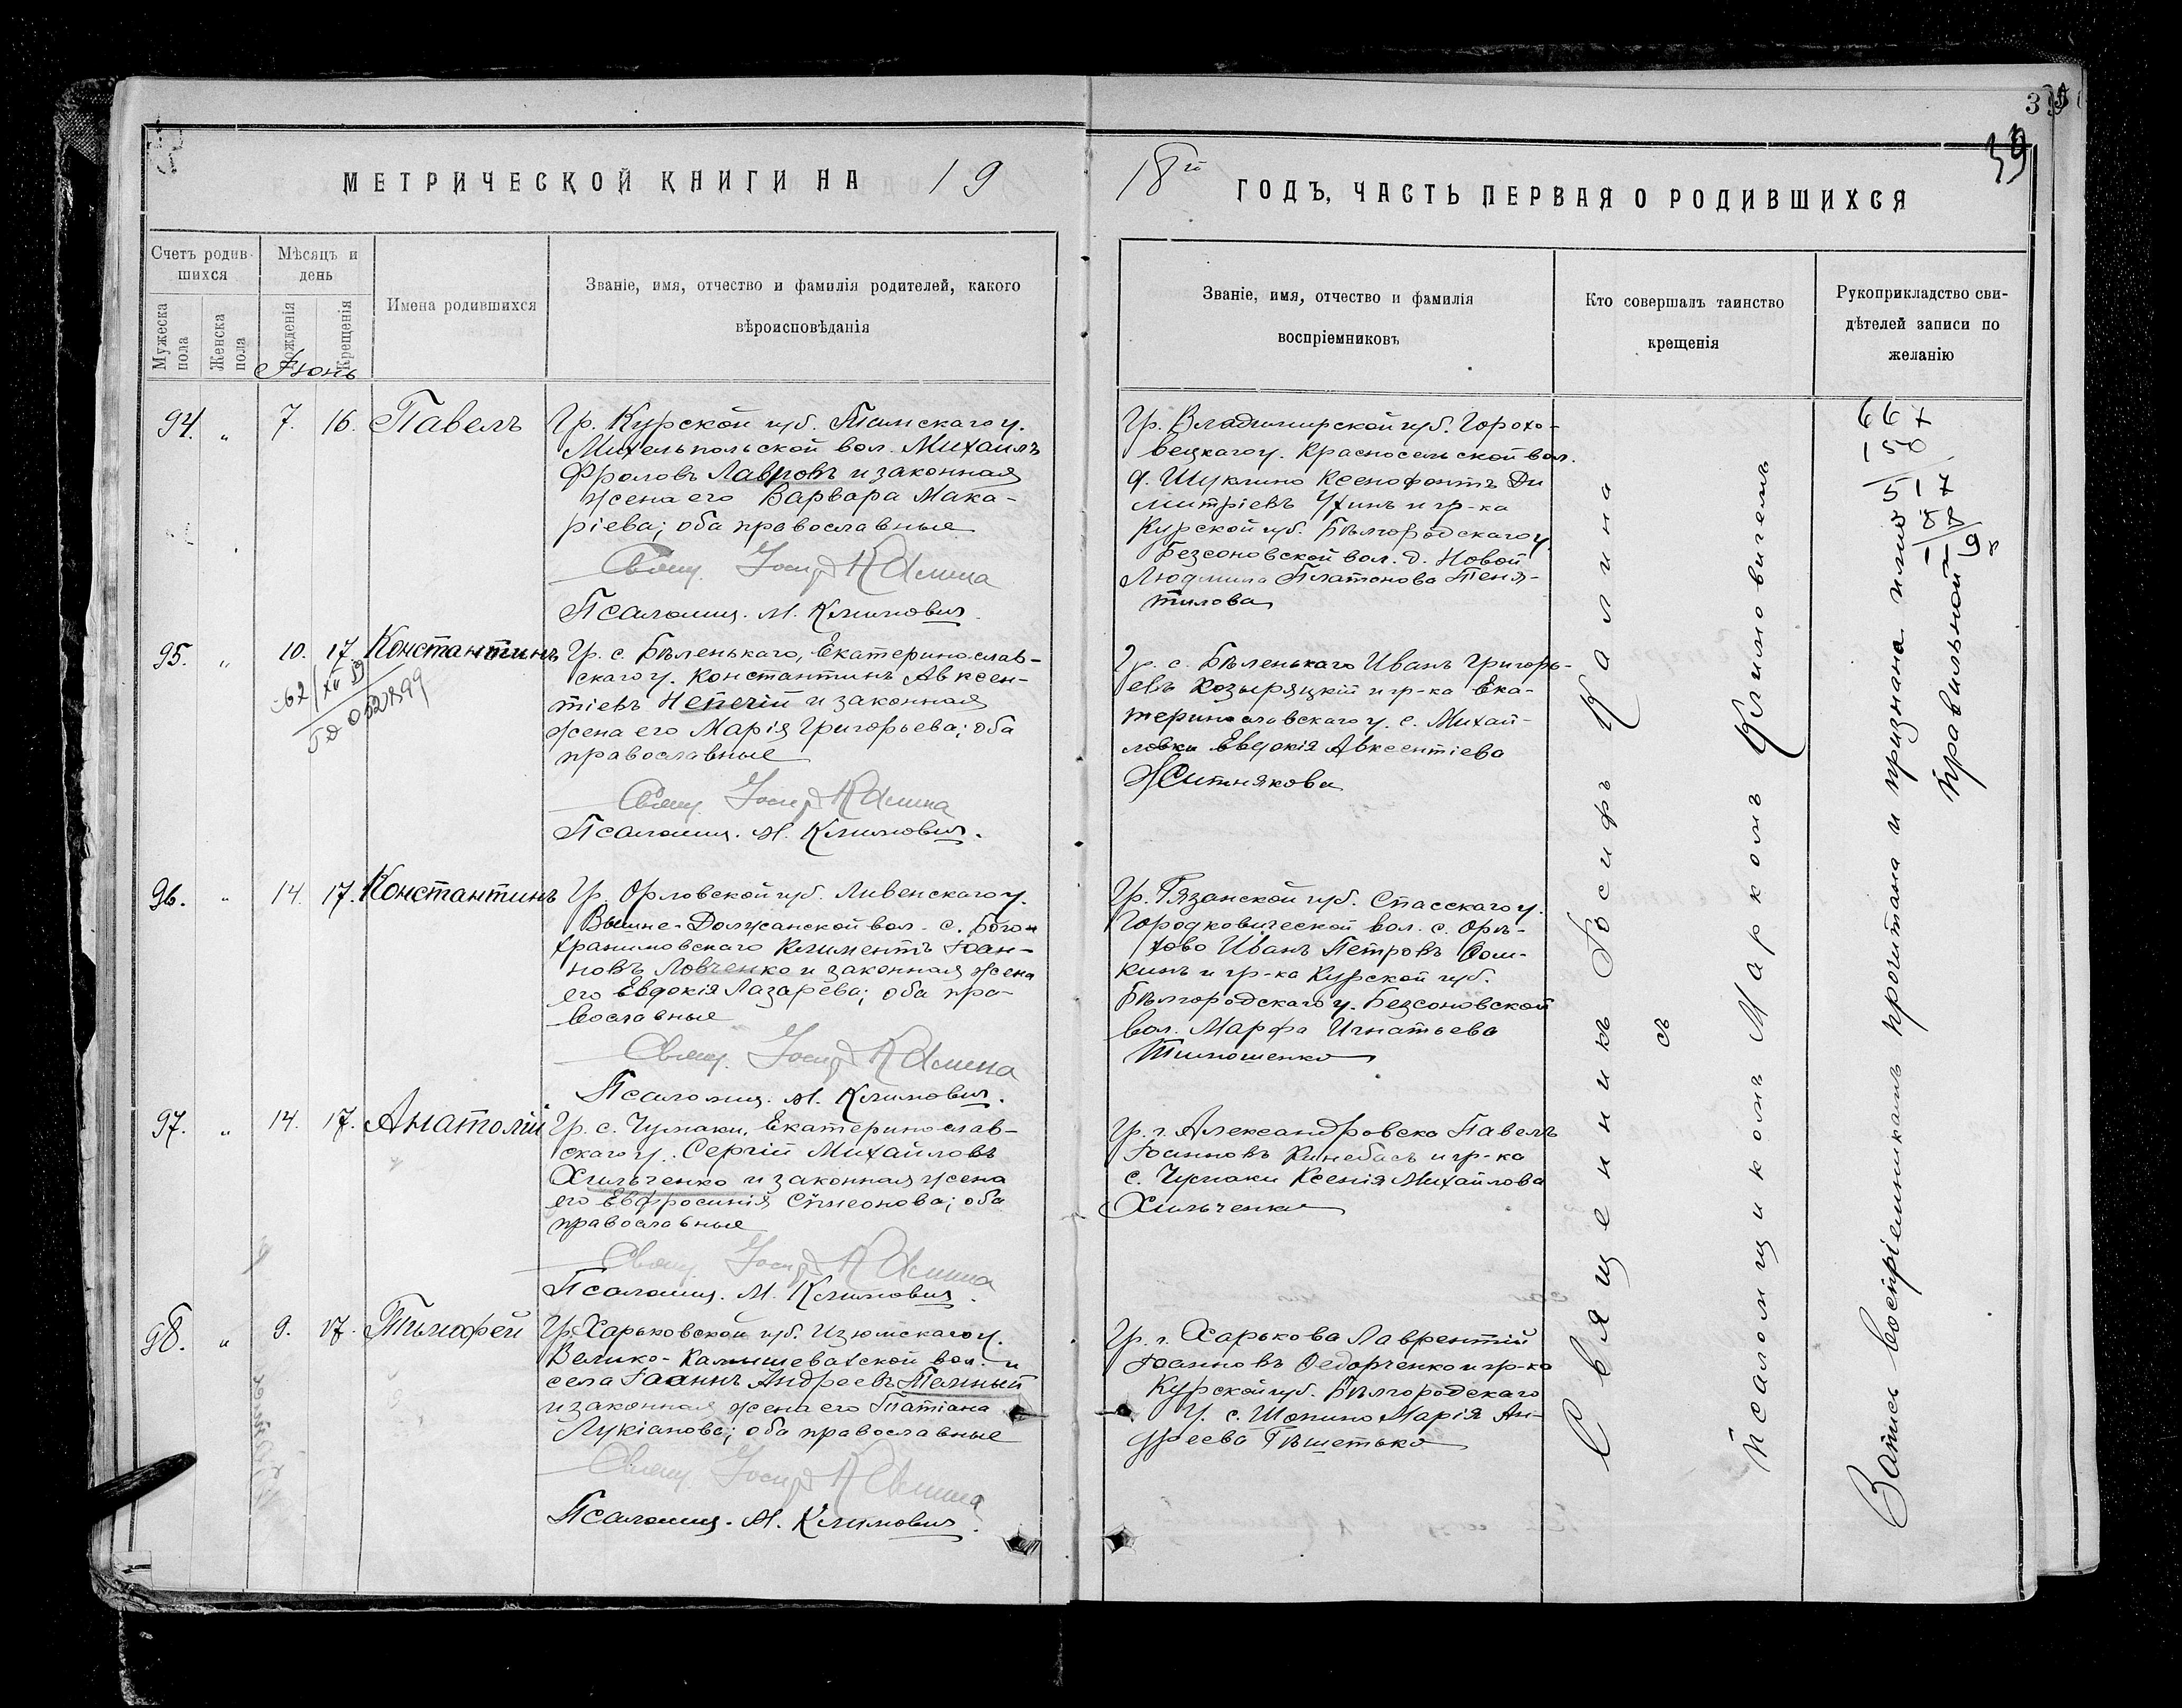 МЕТРИЧЕСКОЙ КНИГИ НА 19
18й ГОДЪ, ЧАСТЬ ПЕРВАЯ О РОДИВШИХСЯ
39
Счетъ родив-
шихся
Мужеска
пола
Женска
пола
Мѣсяцъ и
день
Рожденія
Крещенія
Имена родившихся
Званіе, имя, отчество и фамилія родителей, какого
вѣроисповѣданія
Званіе, имя, отчество и фамилія
воспріемниковъ
Кто совершалъ таинство
крещенія
Рукоприкладство сви-
дѣтелей записи по
желанію
Іюнь
94. „ 7. 16. Павелъ
Гр. Курской губ. Тимскаго у.
Михельпольской вол. Михаилъ
Фроловъ Лавровъ и законная
жена его Варвара Мака-
ріева; оба православные
Свящ. Іосифъ Калина
Псаломщ. М. Климовичъ.
Гр. Владимирской губ. Горохо-
вецкаго у. Красносельской вол.
д. Шуклино Ксенофонтъ Ди
митріевъ Ухинъ и гр-ка
Курской губ. Бѣлгородскаго у.
Безсоновской вол. д. Новой
Людмила Платонова
95. „ 10. 17. Константинъ
Гр. с. Бѣленькаго, Екатеринослав-
скаго у. Константинъ Авксен-
тіевъ Непечій и законная
жена его Марія Григорьева; оба
православные
Свящ. Іосифъ Калина
Псаломщ. М. Климовичъ.
Гр. с. Бѣленькаго Иванъ Григорь-
евъ Козыряцкій и гр-ка Ека-
теринославскаго у. с. Михай-
ловки Евдокія Авксентіева
Житнякова
96. „ 14. 17. Константинъ
Гр. Орловской губ. Ливенскаго у.
Вышне-Должанской вол. с. Бого
Климентъ Іоан-
новъ Ловченко и законная жена
его Евдокія Лазарева; оба пра-
вославные
Свящ. Іосифъ Калина
Псаломщ. М. Климовичъ.
Гр. Рязанской губ. Спасскаго у.
Городковической вол. с. Орѣ-
хово Иванъ Петровъ Фом-
кинъ и гр-ка Курской губ.
Бѣлгородскаго у. Безсоновской
вол. Марфа Игнатьева
Тимошенко
97. „ 14. 17. Анатолій
Гр. с. Чумаки, Екатеринослав-
скаго у. Сергій Михайловъ
Хильченко и законная жена
его Евфросинія Симеонова; оба
православные
Свящ. Іосифъ Калина
Псаломщ. М. Климовичъ.
Гр. г. Александровска Павелъ
Іоанновъ Кинебасъ и гр-ка
с. Чумаки Ксенія Михайлова
Хильченко
98. „ 9. 17. Тимофей
Гр. Харьковской губ. Изюмскаго у.
Велико-Камышевахской вол. и
села Іоаннъ Андреевъ
и законная жена его Татіана
Лукіанова; оба православные
Свящ. Іосифъ Калина
Псаломщ. М. Климовичъ.
Гр. г. Харькова Лаврентій
Іоанновъ Федорченко и гр-ка
Курской губ. Бѣлгородскаго
у. с. Шопино Марія Ан-
дреева Рѣшетько
Священникъ Іосифъ Калина
съ
Псаломщикомъ Маркомъ Климовичемъ
Запись воспріемникамъ прочитана и признана ими
правильной